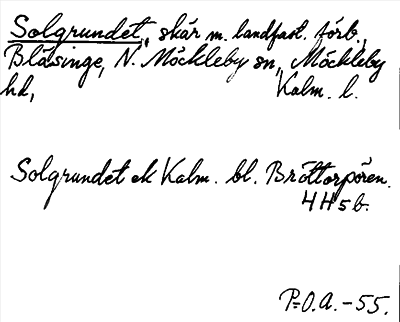 Solgrundet, skär m. landfast. förb.,
Bläsinge, N. Möckleby sn, Möckleby
hd, Kalm. l.
Solgrundet ek Kalm. bl. Bröttorpören.
4H5b.
P-O.A. -55.